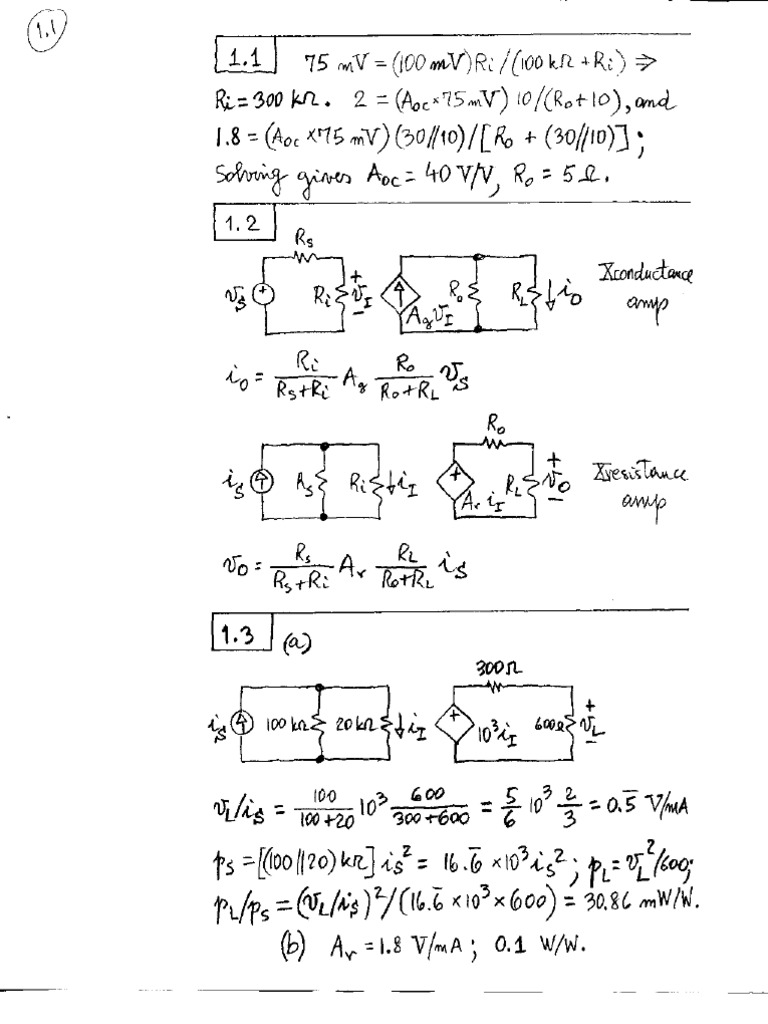 1.1
1.1 75 mV = (100 mV) Ri / (100 kΩ + Ri) ⇒
Ri = 300 kΩ. 2 = (Aoc × 75 mV) 10/(Ro + 10), and
1.8 = (Aoc × 75 mV) (30//10) / [Ro + (30//10)];
Solving gives Aoc = 40 V/V, Ro = 5 Ω.
1.2
Rs
vs Ri + vI − AgvI Ro RL io Xconductance amp
io = Ri/(Rs+Ri) Ag Ro/(Ro+RL) vs
Ro
is Rs Ri iI Ar iI RL + vo − Xresistance amp
vo = Rs/(Rs+Ri) Ar RL/(Ro+RL) is
1.3 (a)
300Ω
is 100 kΩ 20 kΩ iI + 10³iI 600Ω + vL −
vL/is = 100/(100+20) 10³ 600/(300+600) = 5/6 10³ 2/3 = 0.5̄ V/mA
ps = [(100//20) kΩ] is² = 16.6̄ × 10³ is²; pL = vL²/600;
pL/ps = (vL/is)²/(16.6̄ × 10³ × 600) = 30.86 mW/W.
(b) Ar = 1.8 V/mA; 0.1 W/W.